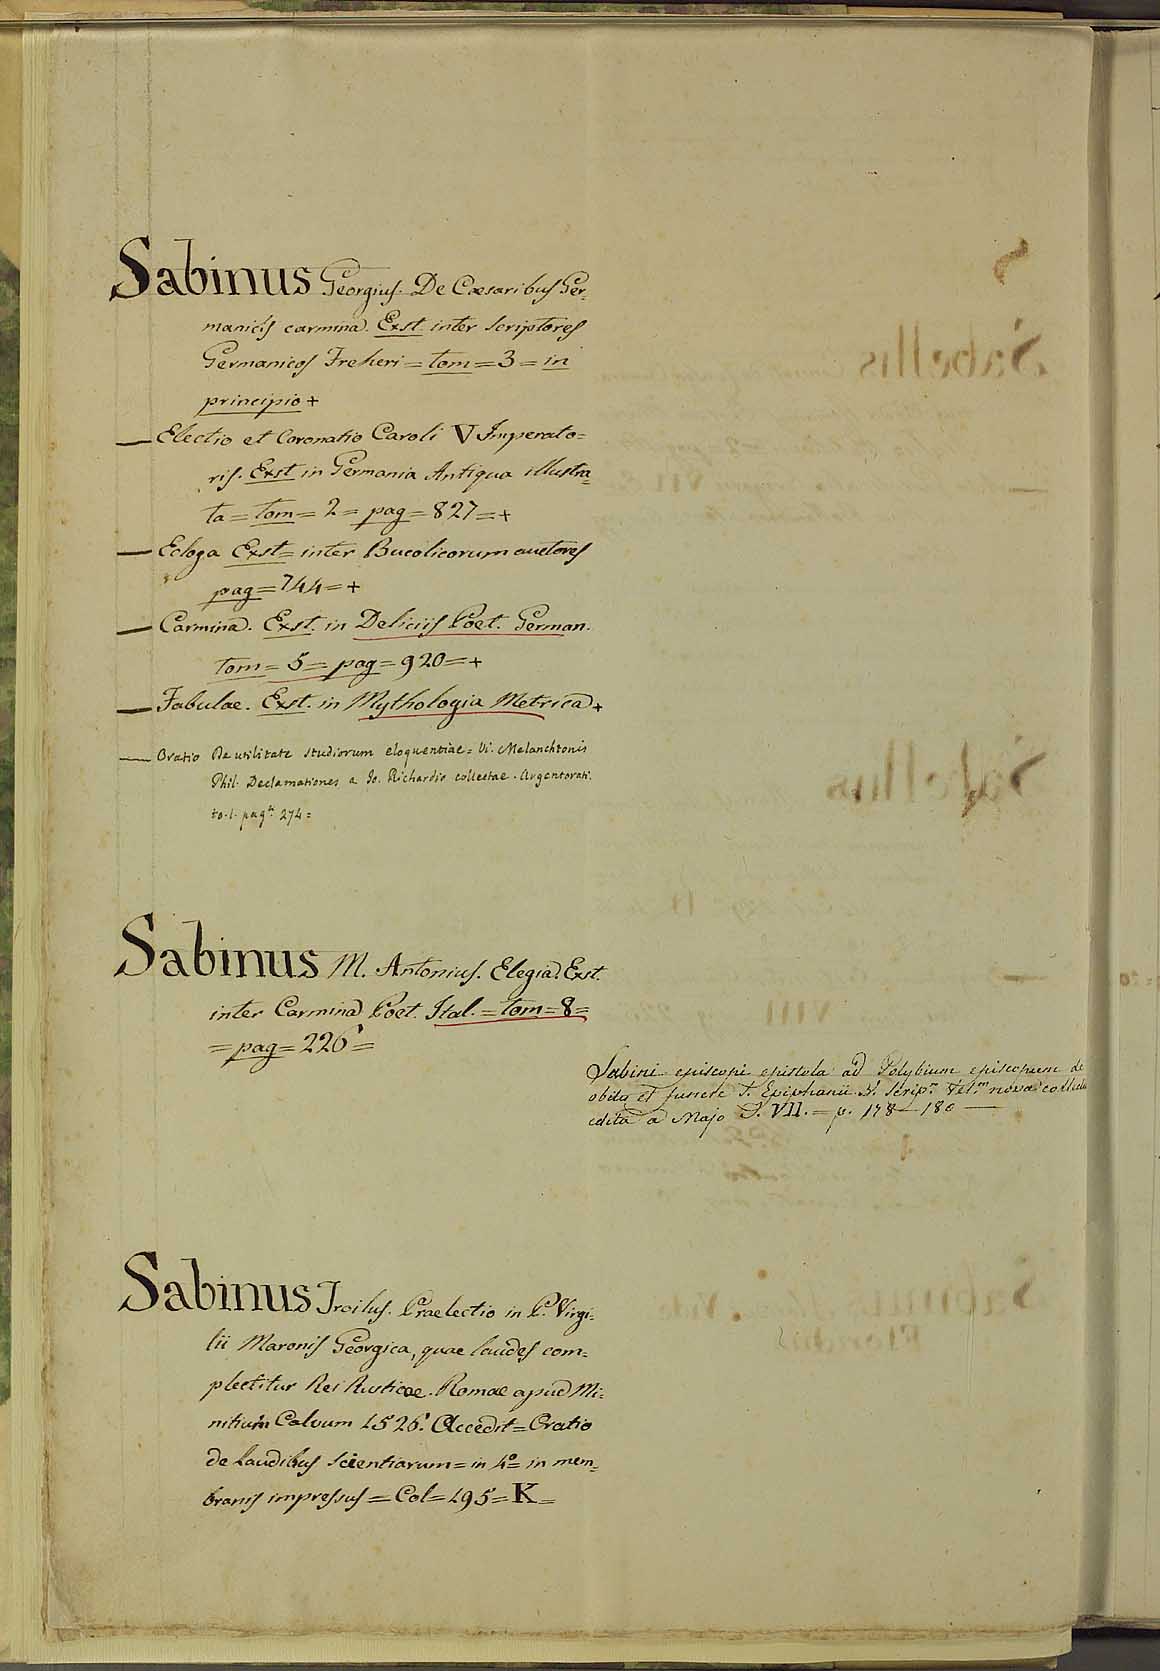 Sabinus Georgius. De Cæsaribus Ger=
manicis carmina. Exst. inter scriptores
Germanicos Freheri = tom = 3 = in
principio +
— Electio et Coronatio Caroli V Imperato=
ris. Exst in Germania Antiqua illustra=
ta = tom = 2 = pag = 827 = +
— Ecloga Exst = inter Bucolicorum auctores
pag = 744 = +
— Carmina. Exst. in Deliciis Poet. German.
tom = 5 = pag = 920 = +
— Fabulae. Exst. in Mythologia Metrica +
— Oratio De utilitate studiorum eloquentiae = Vi. Melanchtonis
Phil. Declamationes a Jo. Richardio collectae. Argentorati.
to. 1. pag.ª 274 =
Sabinus M. Antonius. Elegia. Exst.
inter Carmina Poet. Ital. = tom = 8 =
= pag = 226 =
Sabini episcopi epistola ad Polybium episcopum de
obitu et funere S. Epiphanii. V. Scrip.m Vet.m nova collectio
edita a Majo T. VII. = p. 178 — 180 —
Sabinus Troilus. Praelectio in P. Virgi=
lii Maronis Georgica, quae laudes com=
plectitur Rei Rusticae. Romae apud Mi=
nitium Calvum 1526. Accedit = Oratio
de laudibus scientiarum = in 4º = in mem=
branis impressus = Col = 195 = K =